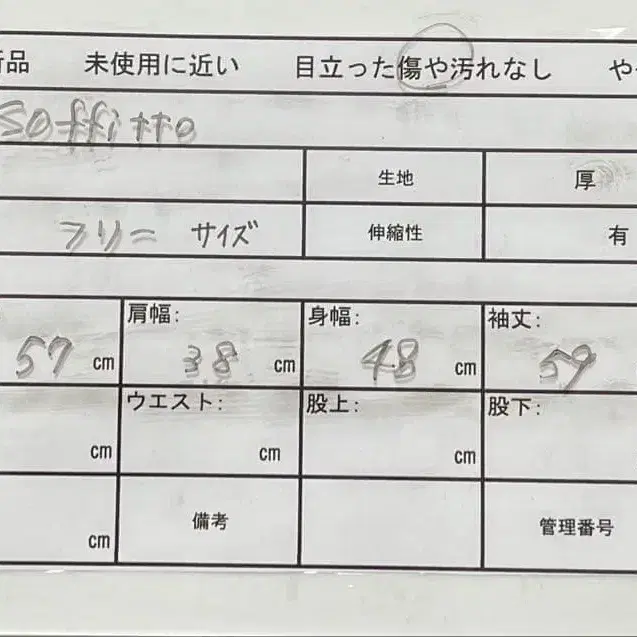 新品 未使用に近い 目立った傷や汚れなし や
soffitto
生地 厚
フリー サイズ 伸縮性 有
肩幅: 身幅: 袖丈:
57 cm 38 cm 48 cm 59
ウエスト: 股上: 股下:
cm cm cm
cm 備考 管理番号